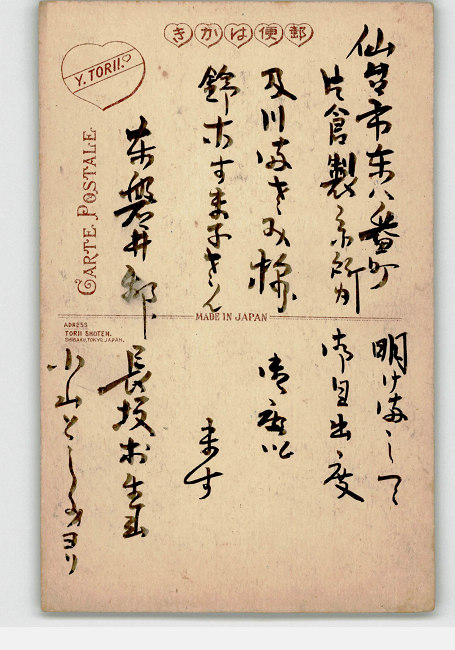 郵便はかき
Y. TORII.
CARTE POSTALE
仙台市東八番町
片倉製糸所内
及川まさみ様
鈴木すま子さん
東磐井郡
MADE IN JAPAN
ADRESS
TORII SHOTEN.
SHIBAKU, TOKYO, JAPAN.
明けまして
御目出度
御座い
ます
長坂村生出
小山としみヨリ